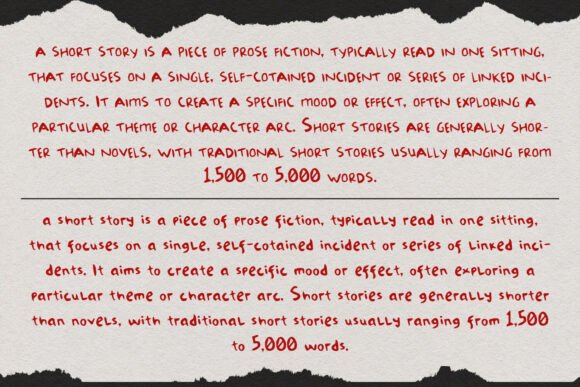 A SHORT STORY IS A PIECE OF PROSE FICTION, TYPICALLY READ IN ONE SITTING,
THAT FOCUSES ON A SINGLE, SELF-COTAINED INCIDENT OR SERIES OF LINKED INCI-
DENTS. IT AIMS TO CREATE A SPECIFIC MOOD OR EFFECT, OFTEN EXPLORING A
PARTICULAR THEME OR CHARACTER ARC. SHORT STORIES ARE GENERALLY SHOR-
TER THAN NOVELS, WITH TRADITIONAL SHORT STORIES USUALLY RANGING FROM
1,500 TO 5,000 WORDS.
a short story is a piece of prose fiction, typically read in one sitting,
that focuses on a single, self-cotained incident or series of linked inci-
dents. It aims to create a specific mood or effect, often exploring a
particular theme or character arc. Short stories are generally shorter
than novels, with traditional short stories usually ranging from 1,500
to 5,000 words.